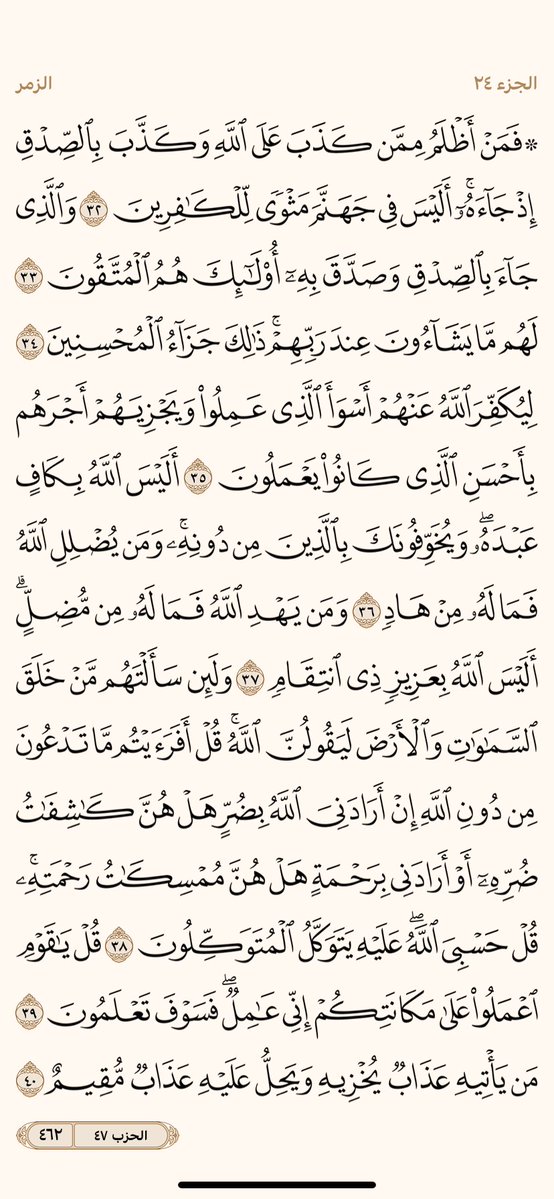 الجزء ٢٤
الزمر
۞ فَمَنۡ أَظۡلَمُ مِمَّن كَذَبَ عَلَى ٱللَّهِ وَكَذَّبَ بِٱلصِّدۡقِ
إِذۡ جَآءَهُۥٓۚ أَلَيۡسَ فِي جَهَنَّمَ مَثۡوٗى لِّلۡكَٰفِرِينَ ٣٢ وَٱلَّذِي
جَآءَ بِٱلصِّدۡقِ وَصَدَّقَ بِهِۦٓ أُوْلَٰٓئِكَ هُمُ ٱلۡمُتَّقُونَ ٣٣
لَهُم مَّا يَشَآءُونَ عِندَ رَبِّهِمۡۚ ذَٰلِكَ جَزَآءُ ٱلۡمُحۡسِنِينَ ٣٤
لِيُكَفِّرَ ٱللَّهُ عَنۡهُمۡ أَسۡوَأَ ٱلَّذِي عَمِلُواْ وَيَجۡزِيَهُمۡ أَجۡرَهُم
بِأَحۡسَنِ ٱلَّذِي كَانُواْ يَعۡمَلُونَ ٣٥ أَلَيۡسَ ٱللَّهُ بِكَافٍ
عَبۡدَهُۥۖ وَيُخَوِّفُونَكَ بِٱلَّذِينَ مِن دُونِهِۦۚ وَمَن يُضۡلِلِ ٱللَّهُ
فَمَا لَهُۥ مِنۡ هَادٖ ٣٦ وَمَن يَهۡدِ ٱللَّهُ فَمَا لَهُۥ مِن مُّضِلٍّۗ
أَلَيۡسَ ٱللَّهُ بِعَزِيزٖ ذِي ٱنتِقَامٖ ٣٧ وَلَئِن سَأَلۡتَهُم مَّنۡ خَلَقَ
ٱلسَّمَٰوَٰتِ وَٱلۡأَرۡضَ لَيَقُولُنَّ ٱللَّهُۚ قُلۡ أَفَرَءَيۡتُم مَّا تَدۡعُونَ
مِن دُونِ ٱللَّهِ إِنۡ أَرَادَنِيَ ٱللَّهُ بِضُرٍّ هَلۡ هُنَّ كَٰشِفَٰتُ
ضُرِّهِۦٓ أَوۡ أَرَادَنِي بِرَحۡمَةٍ هَلۡ هُنَّ مُمۡسِكَٰتُ رَحۡمَتِهِۦۚ
قُلۡ حَسۡبِيَ ٱللَّهُۖ عَلَيۡهِ يَتَوَكَّلُ ٱلۡمُتَوَكِّلُونَ ٣٨ قُلۡ يَٰقَوۡمِ
ٱعۡمَلُواْ عَلَىٰ مَكَانَتِكُمۡ إِنِّي عَٰمِلٞۖ فَسَوۡفَ تَعۡلَمُونَ ٣٩
مَن يَأۡتِيهِ عَذَابٞ يُخۡزِيهِ وَيَحِلُّ عَلَيۡهِ عَذَابٞ مُّقِيمٌ ٤٠
الحزب ٤٧
٤٦٢